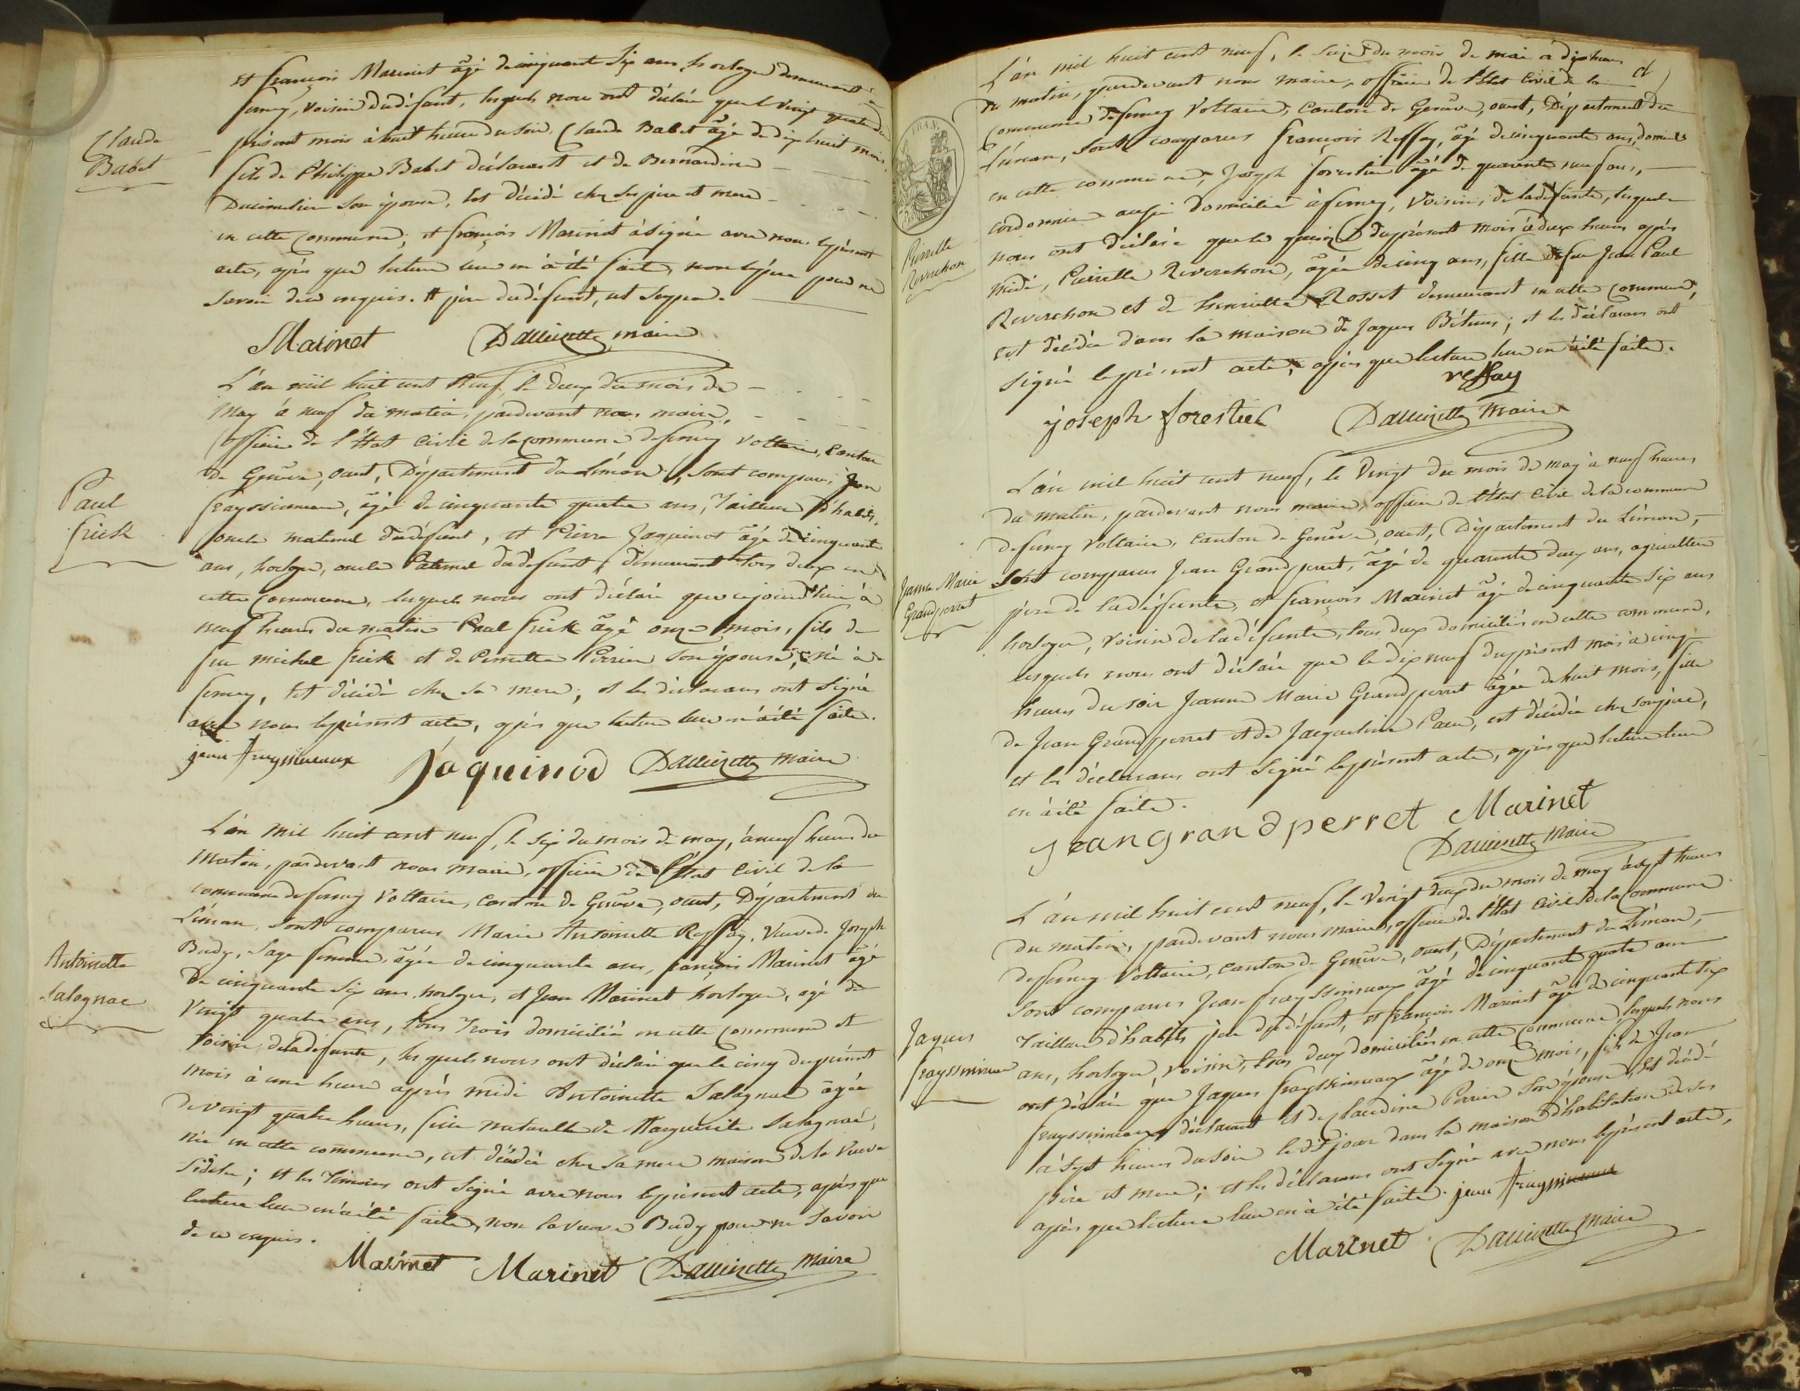 et françois Marinet âgé de cinquante Six ans, horloger demeurant à
ferney, voisin du défunt, lesquels nous ont déclaré que le vingt quatre du
présent mois à huit heures du soir, Claude Babet âgé de dix huit mois
Claude
Babet
fils de Philippe Babet déclarant et de Bernardine
son épouse, est décédé chez ses père et mere
en cette commune, et françois Marinet à signé avec nous le présent
acte, après que lecture leur en à été faite, non le père pour ne
savoir de ce enquis. # père du défunt, est
Marinet Dauizette maire
L'an mil huit cent neuf, le deux du mois de
May à neuf du matin, pardevant nous maire,
officier de l'État Civil de la commune de ferney Voltaire, Canton
de Genêve, ouest, Département du Léman, sont comparus Jean
frayssinieux, âgé de cinquante quatre ans, Tailleur d'habits,
Paul
frick
oncle maternel du défunt, et Pierre Jaquinot âgé de cinquante
ans, horloger, oncle Paternel du défunt, demeurant tous deux en
cette Commune, lesquels nous ont déclaré que cejourd'hui à
neuf heures du matin Paul frick âgé onze mois, fils de
feu michel frick et de Pernette Perrier son épouse, né à
ferney, est décédé chez sa mere; et les déclarans ont signé
avec nous le présent acte, après que lecture leur en à été faite.
jean frayssineaux Jaquinod Dauizette maire
L'an mil huit cent neuf, le six du mois de may, à neuf heures du
matin, pardevant nous maire, officier de l'État Civil de la
commune de ferney Voltaire, canton de Genêve, ouest, Département du
Léman, sont comparus Marie Antoinette Reffay, Veuve de Joseph
Budy, Sage femme, âgée de cinquante ans, françois Marinet âgé
Antoinette
Salagnac
De cinquante Six ans horloger, et Jean Marinet horloger, agé de
Vingt quatre ans, tous Trois domiciliés en cette Commune et
voisins de la défunte, lesquels nous ont déclaré que le cinq du présent
mois à une heure après midi Antoinette Salagnac âgée
de vingt quatre heures, fille naturelle de Marguerite Salagnac,
née en cette commune, est décédée chez sa mere maison de la Veuve
; et les Témoins ont signé avec nous le présent acte, après que
lecture leur en à été faite, non la veuve Budy pour ne savoir
de ce enquis.
Marinet Marinet Dauizette maire
L'an mil huit cent neuf, le seize du mois de mai à dix heures
du matin, pardevant nous maire, officier de l'État Civil de la
Commune de ferney Voltaire, Canton de Genêve, ouest, Département du
Léman, sont comparus françois Reffay, âgé de cinquante ans, domicilié
en cette commune, Joseph forestier âgé de quarante neuf ans,
cordonnier aussi domicilié à ferney, Voisins de la défunte, lesquels
Pierrette
Reverchon
nous ont déclaré que le quinze du présent mois à deux heures après
midi, Pierrette Reverchon, âgée de cinq ans, fille de feu Jean Paul
Reverchon et de henriette Rosset demeurant en cette commune,
est décédée dans la maison de Jaques Bétems; et les déclarans ont
signé le présent acte, après que lecture leur en à été faite.
reffay
joseph forestier Dauizette maire
L'an mil huit cent neuf, le Vingt du mois de may à neuf heures
du matin, pardevant nous maire, officier de l'État Civil de la commune
de ferney Voltaire, canton de Genêve, ouest, Département du Léman,
Jeanne Marie
Grandperret
sont comparus Jean Grandperret, âgé de quarante deux ans, agriculteur
père de la défunte, et françois Marinet âgé de cinquante six ans
horloger, voisin de la défunte, tous deux domiciliés en cette commune,
lesquels nous ont déclaré que le dix neuf du présent mois à cinq
heures du soir Jeanne Marie Grandperret âgée de huit mois, fille
de Jean Grandperret et de Jacqueline Paux, est décédée chez son père,
et les déclarans ont signé le présent acte, après que lecture leur
en à été faite.
jean grandperret Marinet
Dauizette maire
L'an mil huit cent neuf, le Vingt deux du mois de may à sept heures
du matin, pardevant nous maire, officier de l'État Civil de la Commune
de ferney Voltaire, canton de Genêve, ouest, Département du Léman,
sont comparus Jean frayssinieux âgé de cinquante quatre ans
Jaques
frayssinieux
Tailleur d'habits père du défunt, et françois Marinet âgé de cinquante six
ans, horloger, voisin, tous deux domiciliés en cette commune lesquels nous
ont déclaré que Jaques frayssinieux âgé de onze mois, fils de Jean
frayssinieux déclarant et de Claudine Perrier son épouse est décédé
à sept heures du soir le dit jour dans la maison d'habitation de ses
père et mere; et les déclarans ont signé avec nous le présent acte,
après que lecture leur en à été faite. jean frayssineaux
Marinet Dauizette maire